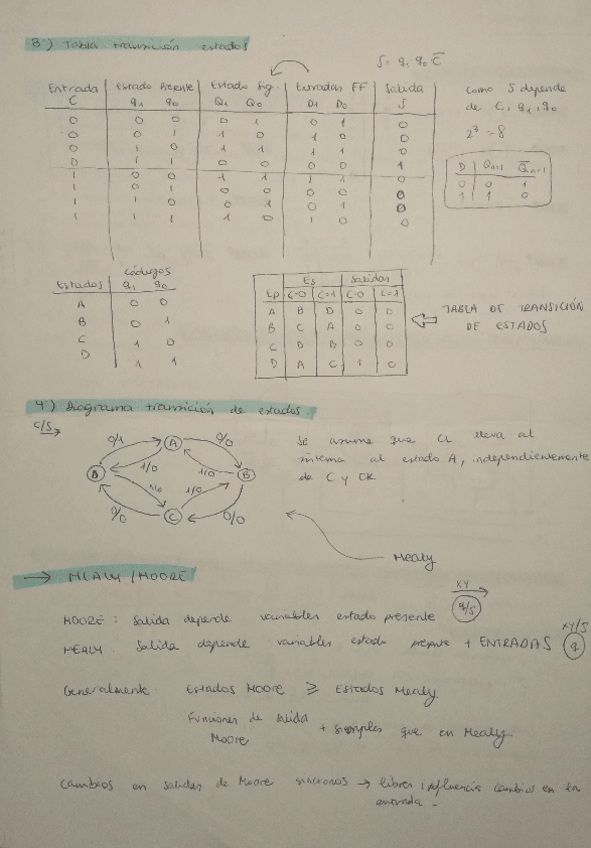 3º) Tabla transición estados
S = q₁ q₀ C̅
Entrada Estado Presente Estado Sig. Entradas FF Salida
C q₁ q₀ Q₁ Q₀ D₁ D₀ S
0 0 0 0 1 0 1 0
0 0 1 1 0 1 0 0
0 1 0 1 1 1 1 0
0 1 1 0 0 0 0 1
1 0 0 1 1 1 1 0
1 0 1 0 0 0 0 0
1 1 0 0 1 0 1 0
1 1 1 1 0 1 0 0
como S depende
de C, q₁, q₀
2³ = 8
D Qn+1 Q̅n+1
0 0 1
1 1 0
Códigos
Estados q₁ q₀
A 0 0
B 0 1
C 1 0
D 1 1
Es Salidas
Ep C=0 C=1 C=0 C=1
A B D 0 0
B C A 0 0
C D B 0 0
D A C 1 0
TABLA DE TRANSICIÓN
DE ESTADOS
4º) Diagrama transición de estados.
C/S
0/1 A 0/0
1/0 1/0
D B
1/0 1/0
0/0 C 0/0
Se asume que CL lleva al
sistema al estado A, independientemente
de C y CK
Mealy
→ MEALY/MOORE
XY
MOORE: Salida depende variables estado presente q/S
XY/S
MEALY: Salida depende variables estado presente + ENTRADAS q
Generalmente: Estados MOORE ≥ Estados Mealy
Funciones de salida
Moore + simples que en Mealy.
Cambios en salidas de Moore síncronos → libres influencia cambios en la
entrada.